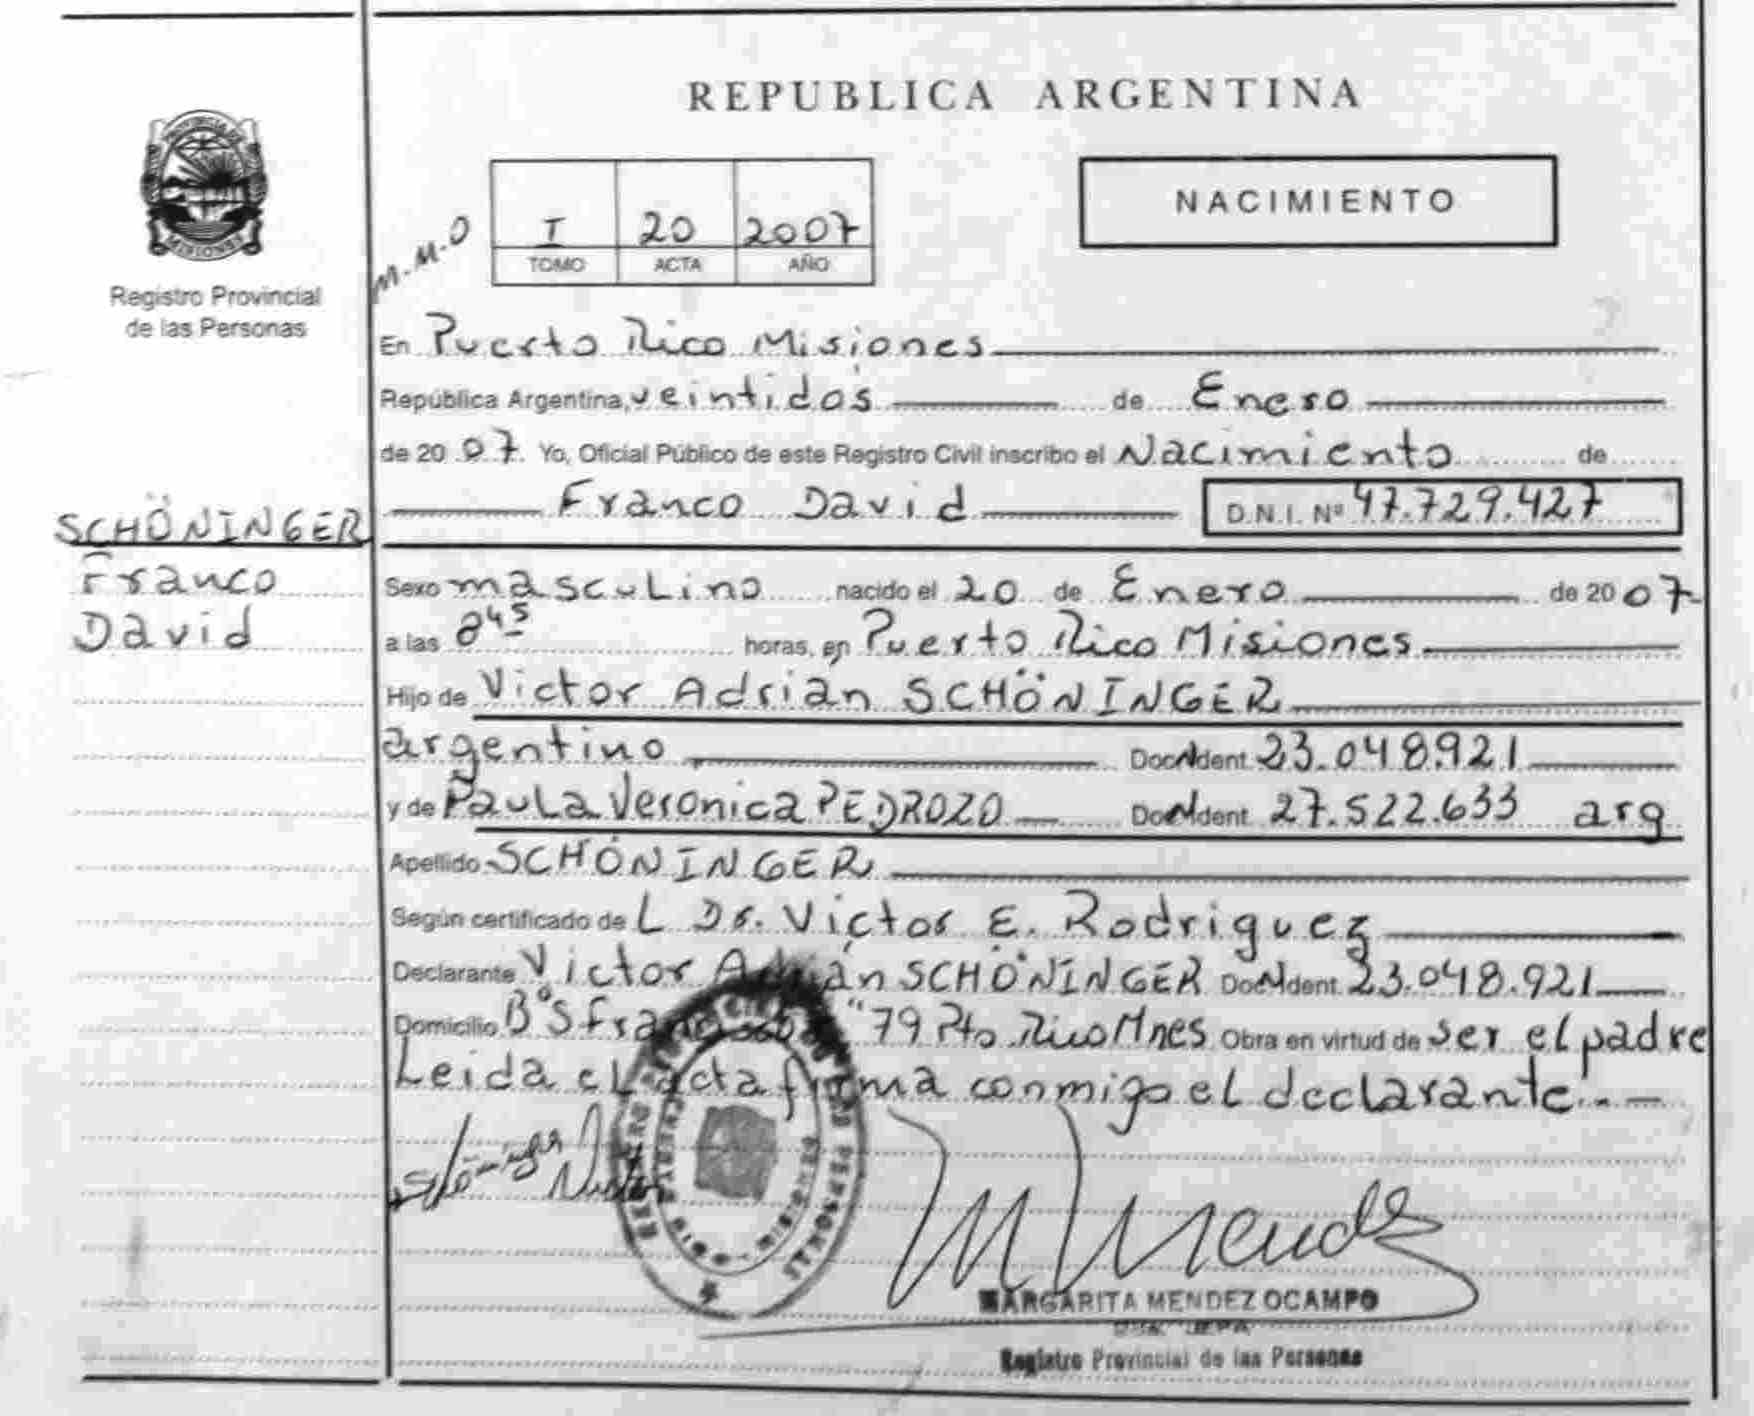 REPUBLICA ARGENTINA
PROVINCIA DE
MISIONES
Registro Provincial
de las Personas
M.M.O
I 20 2007
TOMO ACTA AÑO
NACIMIENTO
En Puerto Rico Misiones
República Argentina, veintidós de Enero
de 2007 Yo, Oficial Público de este Registro Civil inscribo el Nacimiento de
Franco David D.N.I. Nº 47.729.427
SCHÖNINGER
Franco
David
Sexo masculino nacido el 20 de Enero de 2007
a las 8 45 horas, en Puerto Rico Misiones
Hijo de Victor Adrián SCHÖNINGER
argentino Doc Ident. 23.048.921
y de Paula Veronica PEDROZO Doc Ident. 27.522.633 arg
Apellido SCHÖNINGER
Según certificado de L Dr. Victor E. Rodriguez
Declarante Victor Adrián SCHÖNINGER Doc Ident. 23.048.921
Domicilio Bº S 79 Pto Rico Mnes Obra en virtud de ser el padre
Leida el acta firma conmigo el declarante..
MARGARITA MENDEZ OCAMPO
Registro Provincial de las Personas